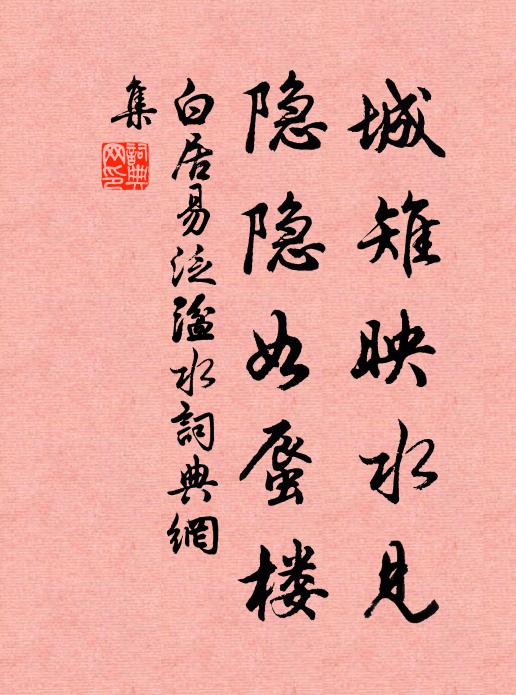 城雉映水见
隐隐如蜃楼
白居易泛溢水詞典網
集
詞典
网印